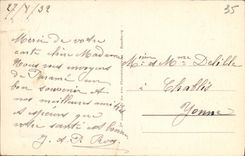 27/7/32
35
Merci de votre
carte chère Madame
Nous vous envoyons
de Paramé un
bon souvenir et
nos meilleures amitiés
et espérons que
votre santé est bonne
J. et R. Roy
Mr et Mme Delible
à Chablis
Yonne